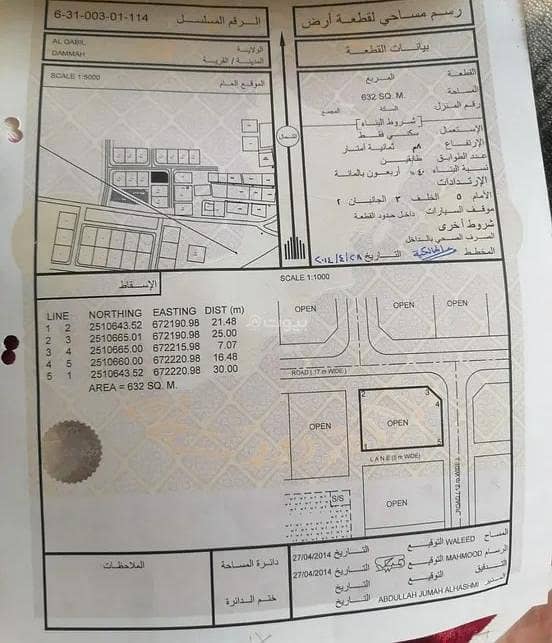 رسم مساحي لقطعة أرض
الرقم المسلسل 6-31-003-01-114
بيانات القطعة
الولاية AL QABIL
المدينة / القرية DAMMAH
SCALE 1:5000
الموقع العام
الشمال
القطعة المربع
المساحة 632 SQ. M.
رقم المنزل السكة المجمع
شروط البناء
الإستعمال سكني فقط
الإرتفاع ٨م ثمانية أمتار
عدد الطوابق طابقين
نسبة البناء ٤٠% أربعون بالمائة
الإرتدادات
الأمام ٥ الخلف ٣ الجانبان ٢
موقف السيارات داخل حدود القطعة
شروط أخرى
الصرف الصحي بالداخل
المخطط التاريخ ٢٠١٤/٤/٢٨
الإسقاط
SCALE 1:1000
LINE NORTHING EASTING DIST (m)
1 2 2510643.52 672190.98 21.48
2 3 2510665.01 672190.98 25.00
3 4 2510665.00 672215.98 7.07
4 5 2510660.00 672220.98 16.48
5 1 2510643.52 672220.98 30.00
AREA = 632 SQ. M.
بيوت
OPEN
OPEN
OPEN
ROAD (17 m WIDE)
2
3
4
OPEN
OPEN
OPEN
1
5
LANE (8 m WIDE)
S/S
OPEN
المساح WALEED التوقيع التاريخ 27/04/2014
الرسام MAHMOOD التوقيع التاريخ 27/04/2014
التدقيق التوقيع التاريخ
المدير ABDULLAH JUMAH ALHASHMI التاريخ
دائرة المساحة
ختم الدائرة
الملاحظات